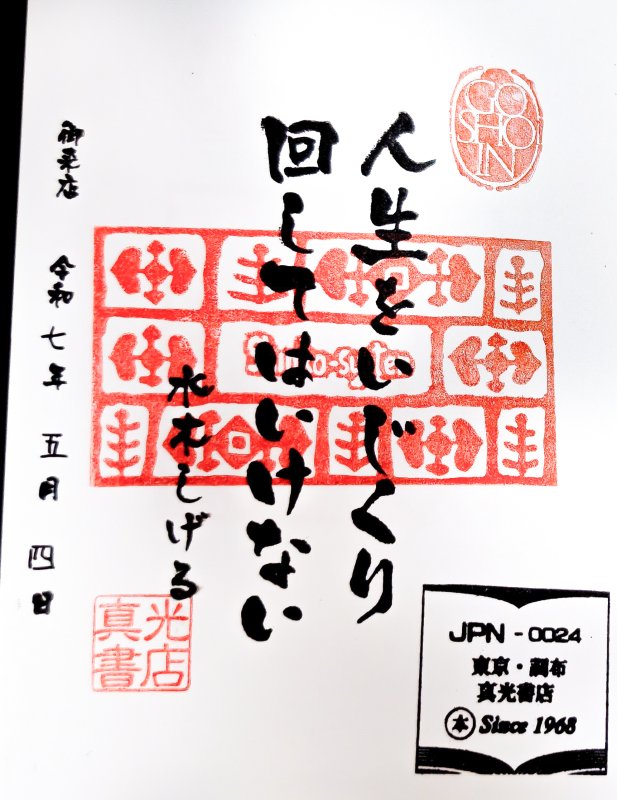 GO
SHO
IN
人生をいじくり
回してはいけない
水木しげる
御来店 令和七年 五月 四日
真光
書店
JPN - 0024
東京・調布
真光書店
本 Since 1968